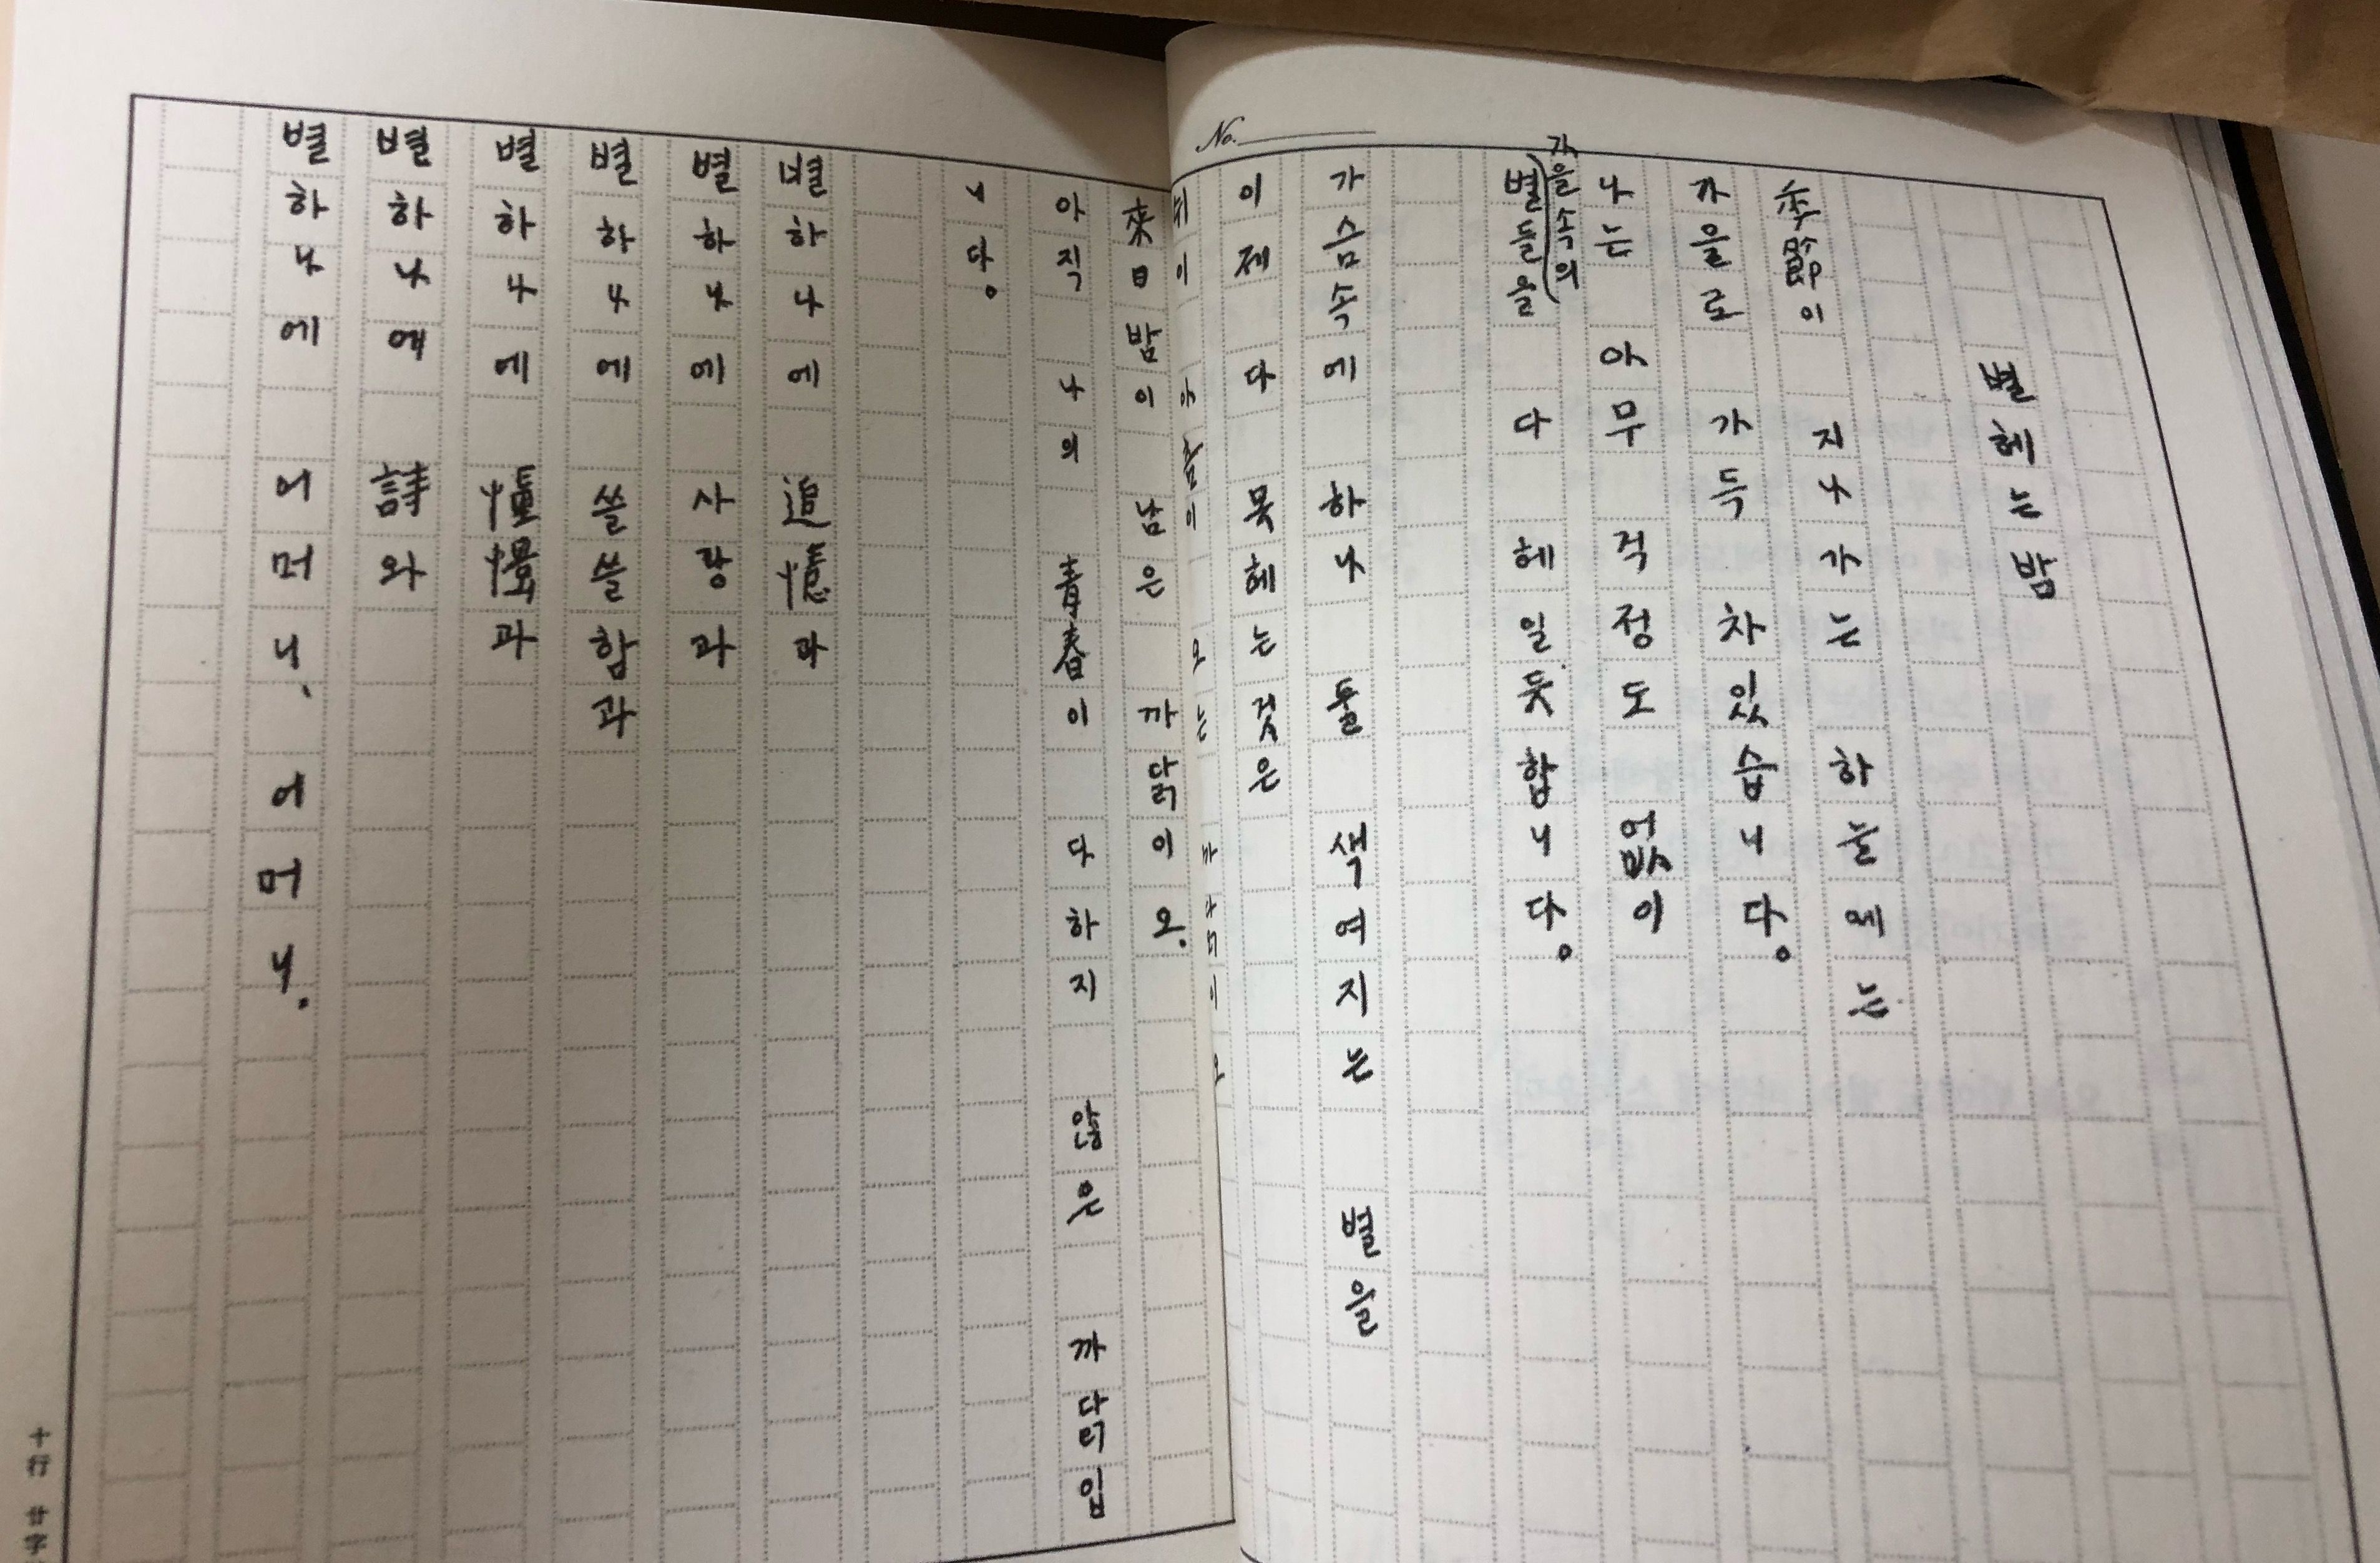 No.
별헤는밤
季節이 지나가는 하늘에는
가을로 가득 차있습니다。
나는 아무 걱정도 없이
가을속의
별들을 다 헤일듯함니다。
가슴속에 하나 둘 색여지는 별을
이제 다 못헤는것은
쉬이 아츰이 오는 까닭이오
來日밤이 남은 까닭이오.
아직 나의 靑春이 다하지 않은 까닭입
니다。
별하나에 追憶과
별하나에 사랑과
별하나에 쓸쓸함과
별하나에 憧憬과
별하나에 詩와
별하나에 어머니、 어머니.
十行 廿字